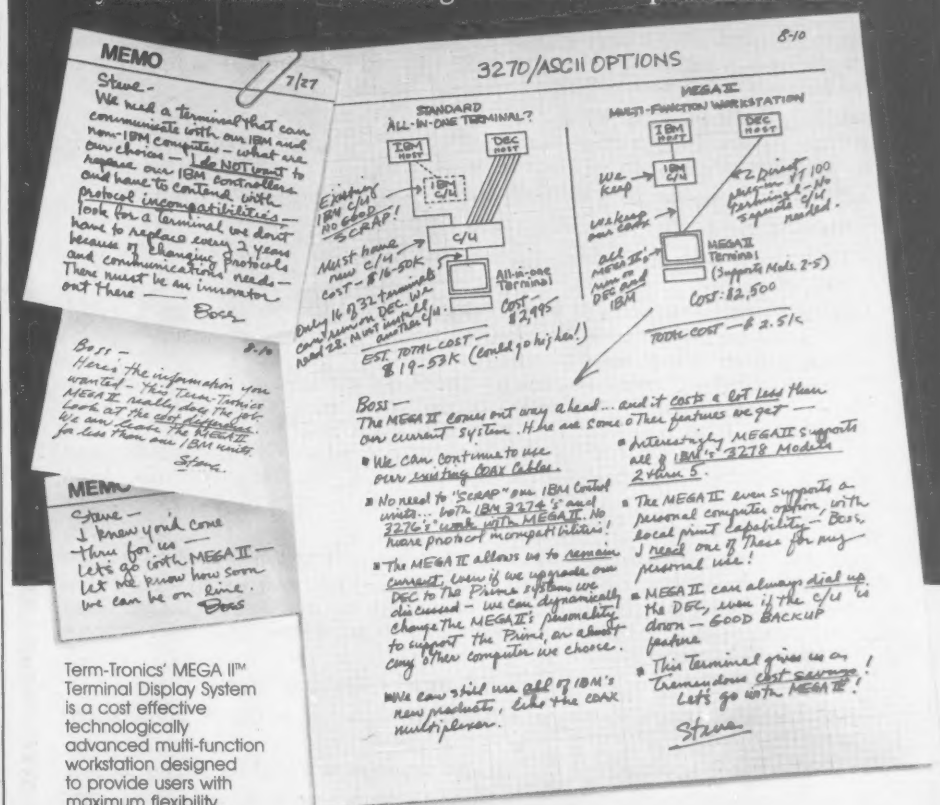 MEMO
7/27
Steve-
We need a terminal that can
communicate with our IBM and
non-IBM computers - what are
our choices - I do NOT want to
replace our IBM controllers
and have to contend with
protocol incompatibilities -
look for a terminal we don't
have to replace every 2 years
because of changing protocols
and communications needs -
There must be an innovator
out there -
Boss
8-10
Boss -
Here's the information you
wanted - this Term-Tronics
MEGA II really does the job.
Look at the cost difference.
We can lease the MEGA II
for less than our IBM units.
Steve.
MEMO
Steve -
I knew you'd come
thru for us -
Let's go with MEGA II -
Let me know how soon
we can be on line.
Boss
Term-Tronics' MEGA II™
Terminal Display System
is a cost effective
technologically
advanced multi-function
workstation designed
to provide users with
maximum flexibility
8-10
3270/ASCII OPTIONS
STANDARD
ALL-IN-ONE TERMINAL?
IBM
HOST
DEC
HOST
Existing
IBM C/U
NO GOOD
SCRAP!
IBM
C/U
Must have
new C/U
COST - $16-50K
C/U
Only 16 of 32 terminals
can run on DEC. We
need 28. Must install
another C/U.
All-in-one
Terminal
Cost -
$2,995
EST. TOTAL COST -
$19-53K (could go higher!)
MEGA II
MULTI-FUNCTION WORKSTATION
IBM
HOST
DEC
HOST
We
keep
IBM
C/U
we keep
our coax
2 Direct
VT100
Terminal - No
separate C/U
needed.
all
MEGA II's
run on
DEC and
IBM
MEGA II
Terminal
(Supports Mods. 2-5)
Cost: $2,500
TOTAL COST - $2.5K
Boss -
The MEGA II comes out way ahead... and it costs a lot less than
our current system. Here are some other features we get -
■ We can continue to use
our existing COAX Cables.
■ No need to "SCRAP" our IBM Control
units... both IBM 3274's and
3276's work with MEGA II. No
more protocol incompatibilities!
■ The MEGA II allows us to remain
current, even if we upgrade our
DEC to the Prime system we
discussed - we can dynamically
change the MEGA II's personality
to support the Prime, or almost
any other computer we choose.
■ We can still use all of IBM's
new products, like the coax
multiplexer.
■ Interestingly MEGA II supports
all of IBM's 3278 Models
2 thru 5.
■ The MEGA II even supports a
personal computer option, with
local print capability - Boss,
I need one of these for my
personal use!
■ MEGA II can always dial up
the DEC, even if the C/U is
down - GOOD BACKUP
feature
■ This Terminal gives us a
tremendous cost savings!
Let's go with MEGA II!
Steve